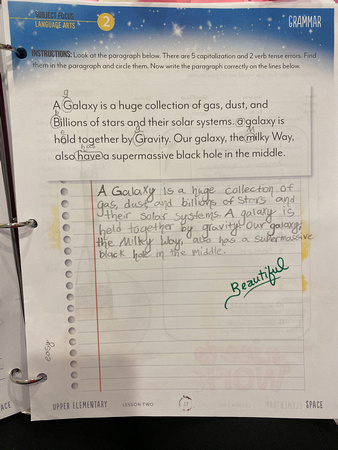 SUBJECT FOCUS
LANGUAGE ARTS
2
GRAMMAR
INSTRUCTIONS: Look at the paragraph below. There are 5 capitalization and 2 verb tense errors. Find
them in the paragraph and circle them. Now write the paragraph correctly on the lines below.
g
A Galaxy is a huge collection of gas, dust, and
b
Billions of stars and their solar systems. a galaxy is
hold together by Gravity. Our galaxy, the milky Way,
has
also have a supermassive black hole in the middle.
A Galaxy is a huge collecton of
gas, dust, and billions of stars and
their solar systems. A galaxy is
held together by gravity. Our galaxy,
the Milky Way, also has a supermassive
black hole in the middle.
Beautiful
easy
UPPER ELEMENTARY
LESSON TWO
17
SPACE